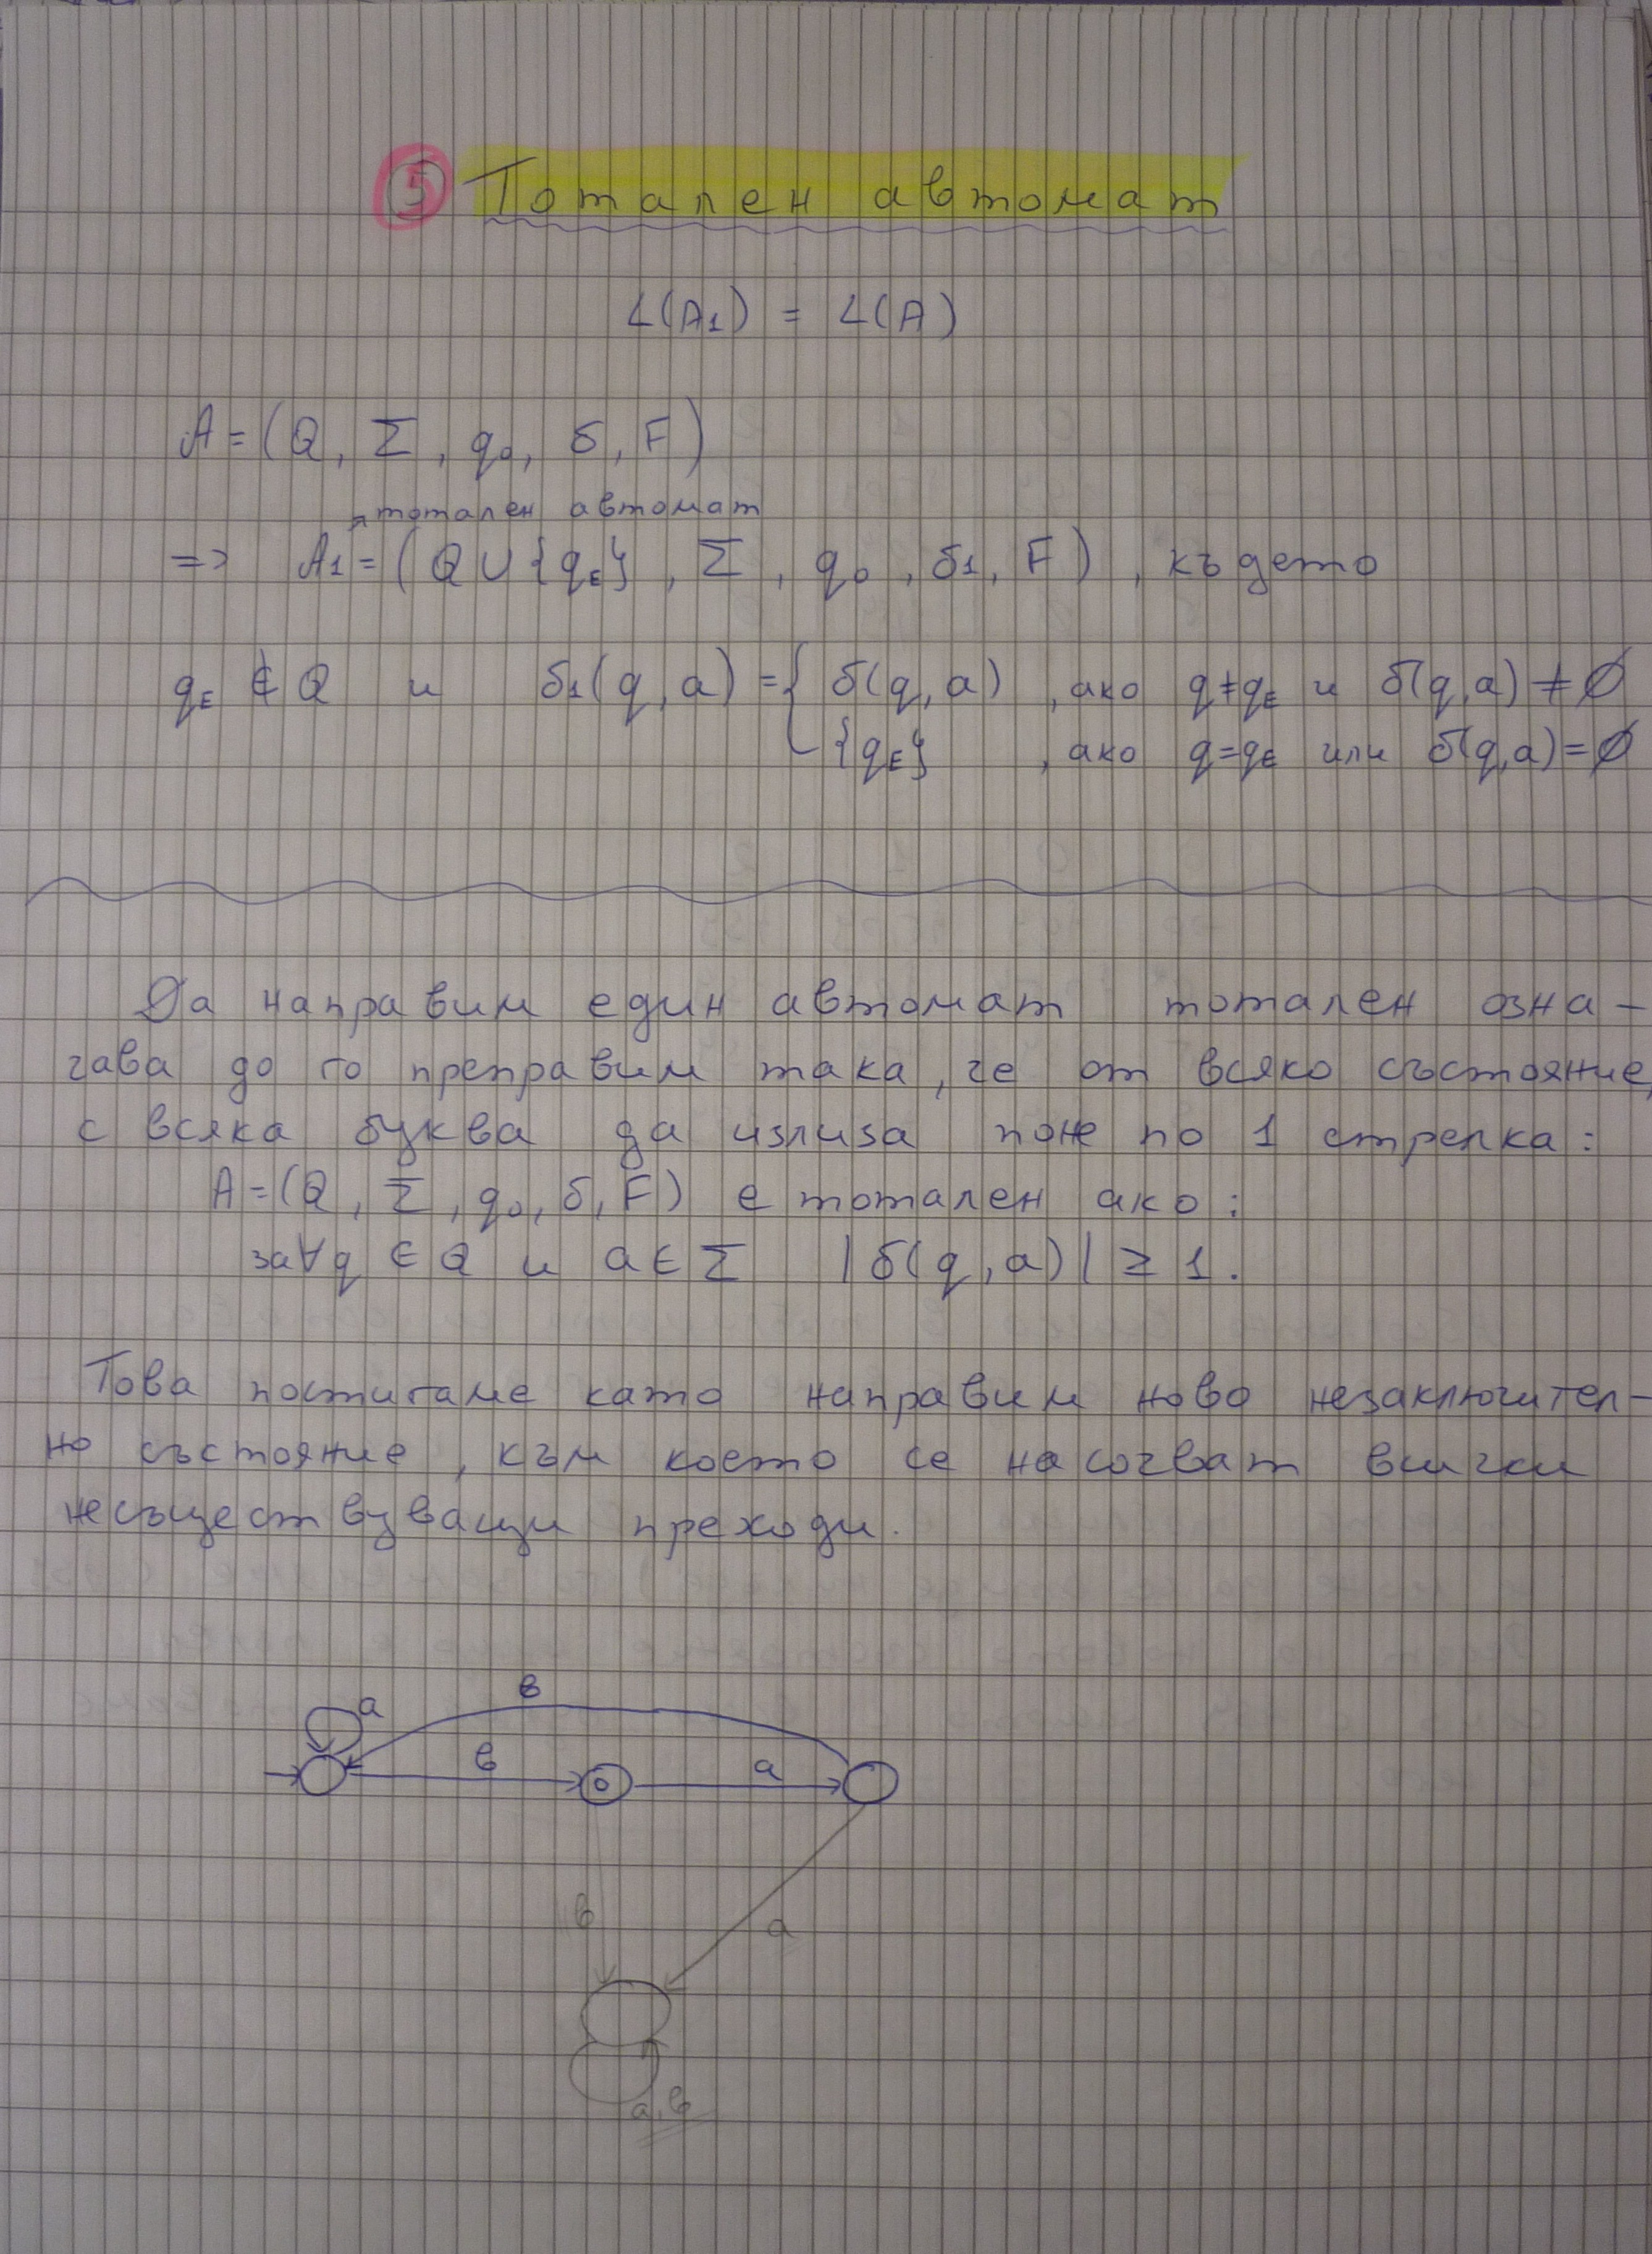 5 Тотален автомат
L(A1) = L(A)
A = (Q, Σ, q0, δ, F)
тотален автомат
=> A1 = (Q ∪ {qE}, Σ, q0, δ1, F), където
qE ∉ Q и δ1(q, a) = { δ(q, a), ако q ≠ qE и δ(q, a) ≠ Ø
{qE}, ако q = qE или δ(q, a) = Ø
Да направим един автомат тотален озна-
чава до го преправим така, че от всяко състояние,
с всяка буква да излиза поне по 1 стрелка:
A = (Q, Σ, q0, δ, F) е тотален ако:
за ∀q ∈ Q и a ∈ Σ |δ(q, a)| ≥ 1.
Това постигаме като направим ново незаключител-
но състояние, към което се насочват всички
несъществуващи преходи.
в
a
в a
в a
a, в